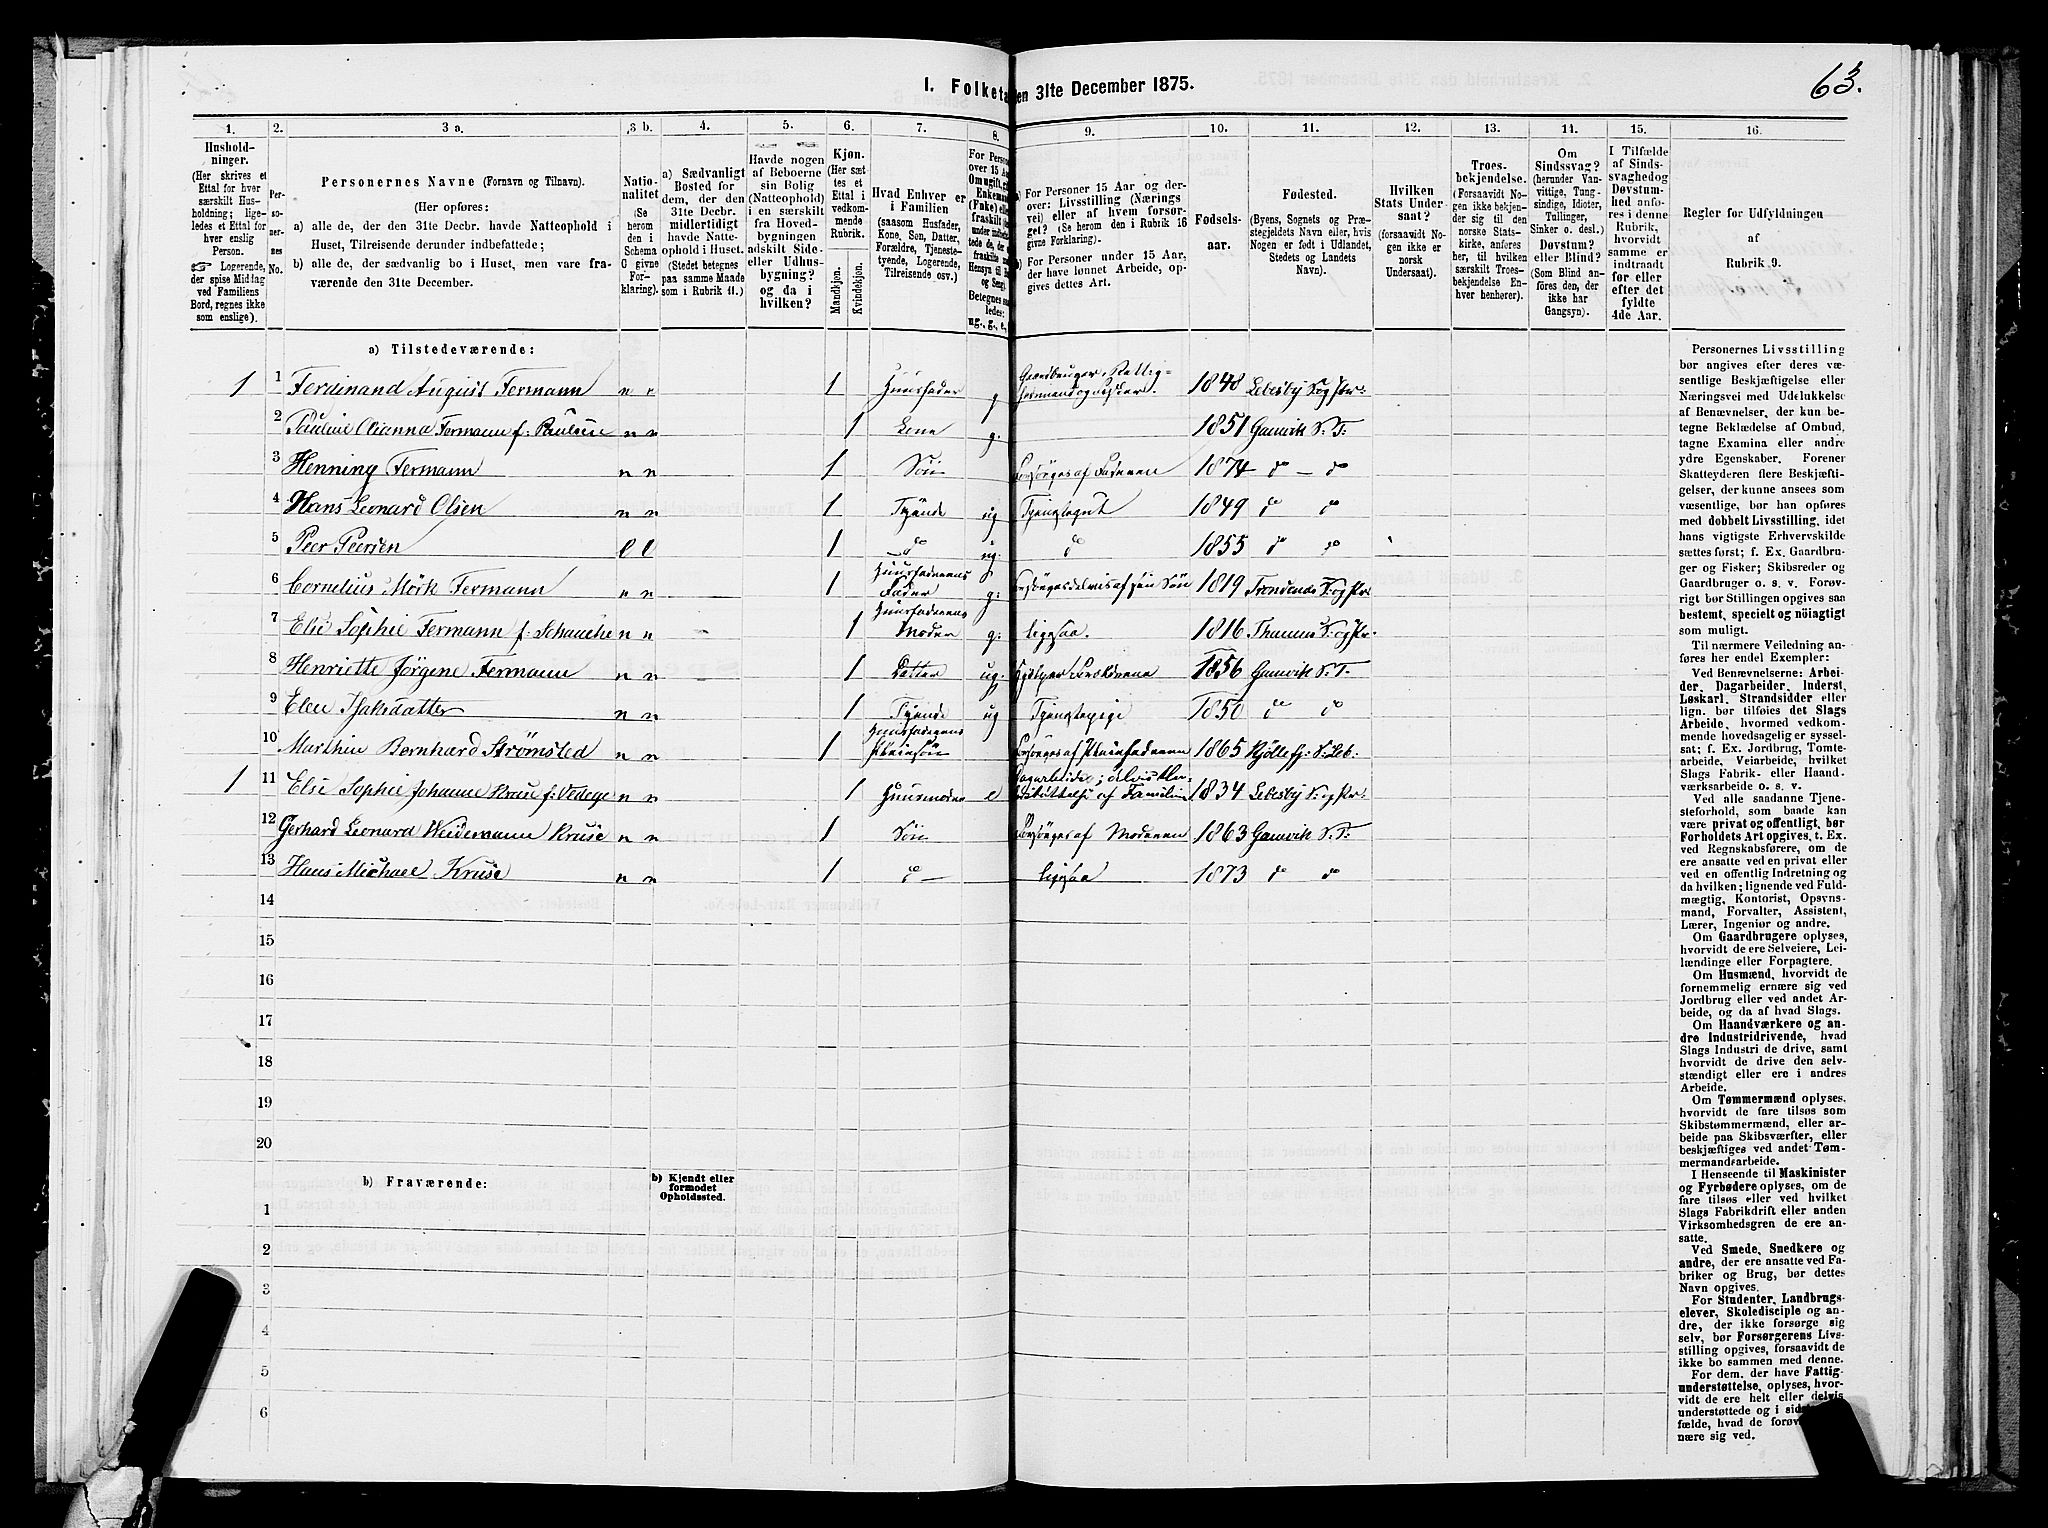 63.
I. Folketa en 31te December 1875.
1. 2. 3 a. 3 b. 4. 5. 6. 7. 8. 9. 10. 11. 12. 13. 14. 15. 16.
Hushold-
ninger.
(Her skrives et
Ettal for hver
særskilt Hus-
holdning; lige-
ledes et Ettal for
hver enslig
Person.
Logerende,
der spise Middag
ved Familiens
Bord, regnes ikke
som enslige).
Per-
so-
ner-
nes
No.
Personernes Navne (Fornavn og Tilnavn).
(Her opføres:
a) alle de, der den 31te Decbr. havde Natteophold i
Huset, Tilreisende derunder indbefattede;
b) alle de, der sædvanlig bo i Huset, men vare fra-
værende den 31te December.
Natio-
nalitet
(Se
herom
den i
Schema
G givne
For-
klaring).
a) Sædvanligt
Bosted for
dem, der den
31te Decbr.
midlertidigt
havde Natte-
ophold i Huset.
(Stedet betegnes
paa samme Maade
som i Rubrik 11.)
Havde nogen
af Beboerne
sin Bolig
(Natteophold)
i en særskilt
fra Hoved-
bygningen
adskilt Side-
eller Udhus-
bygning?
og da i
hvilken?
Kjøn.
(Her sæt
tes et
Ettal i
vedkom-
mende
Rubrik.
Mandkjøn.
Kvindekjøn.
Hvad Enhver er
i Familien
(saasom Husfader,
Kone, Søn, Datter,
Forældre, Tjeneste-
tyende, Logerende,
Tilreisende osv.)
For Person
over 15 Aa
Betegnes saa
ledes:
ug., g., e.,
a) For Personer 15 Aar og der-
over: Livsstilling (Nærings
vei) eller af hvem forsør-
get? (Se herom den i Rubrik 16
givne Forklaring).
b) For Personer under 15 Aar,
der have lønnet Arbeide, op-
gives dettes Art.
Fødsels-
aar.
Fødested.
(Byens, Sognets og Præ-
stegjeldets Navn eller, hvis
Nogen er født i Udlandet,
Stedets og Landets
Navn).
Hvilken
Stats Under-
saat?
(forsaavidt No-
gen ikke er
norsk
Undersaat).
Troes-
bekjendelse.
(Forsaavidt No-
gen ikke bekjen-
der sig til den
norske Stats-
kirke, anføres
her, til hvilken
særskilt Troes-
bekjendelse En-
hver henhører).
Om
Sindssvag?
(herunder Van-
vittige, Tung-
sindige, Idioter,
Tullinger,
Sinker o. desl.)
Døvstum?
eller Blind?
(Som Blind an-
føres den, der
ikke har
Gangsyn).
I Tilfælde
af Sinds-
svaghedog
Døvstum-
hed anfø-
res i denne
Rubrik,
hvorvidt
samme er
indtraadt
før eller
efter det
fyldte
4de Aar.
Regler for Udfyldningen
af
Rubrik 9.
a) Tilstedeværende:
1 1 Ferdinand August Fermann n n 1 Huusfader g 1848 Lebesby Sog Pr.
2 Pauline Olianna Fermann f: Paulsen n n 1 Kone g. 1851 Gamvik S. T:
3 Henning Fermann n n 1 Søn Forsørges af Faderen 1874 do — do
4 Hans Leonard Olsen n n 1 Tyende ug Tjenestegut 1849 do do
5 Peer Peersen l l 1 do ug. do 1855 do do
6 Cornelius Mörk Fermann n n 1 Huusfaderens Fader g: Forsørges delvis af sin Søn 1819 Trondenæs S. og Pr.
7 Else Sophie Fermann f. Schanche n n 1 Huusfaderens Moder g: ligesaa. 1816 S. og Pr.
8 Henriette Jörgene Fermann n n 1 Datter ug. 1856 Gamvik S. T.
9 Elen Isaksdatter n n 1 Tyende ug Tjenestepige 1850 do do
10 Marthin Bernhard Strömsted n n 1 Huusfaderens Pleiesøn Forsørges af Pleiefaderen 1865 Kjöllefj. S. Leb.
1 11 Else Sophie Johanne Kruse f: n n 1 Huusmoder e Dagarbeide; delvis af Familie 1834 Lebesby S. og Pr.
12 Gerhard Leonard Weidemann Kruse n n 1 Søn Forsørges af Moderen 1863 Gamvik S. T:
13 Hans Michael Kruse n n 1 do — ligesaa 1873 do do
14
15
16
17
18
19
20
b) Fraværende:
b) Kjendt eller
formodet
Opholdssted.
1
2
3
4
5
6
Personernes Livsstilling
bør angives efter deres væ-
sentlige Beskjæftigelse eller
Næringsvei med Udelukkelse
af Benævnelser, der kun be-
tegne Beklædelse af Ombud,
tagne Examina eller andre
ydre Egenskaber. Forener
Skatteyderen flere Beskjæfti-
gelser, der kunne ansees som
væsentlige, bør han opføres
med dobbelt Livsstilling, idet
hans vigtigste Erhvervskilde
sættes først; f. Ex. Gaardbru-
ger og Fisker; Skibsreder og
Gaardbruger o. s. v. Forøv-
rigt bør Stillingen opgives saa
bestemt, specielt og nöiagtigt
som muligt.
Til nærmere Veiledning an-
føres her endel Exempler:
Ved Benævnelserne: Arbei-
der, Dagarbeider, Inderst,
Løskarl, Strandsidder eller
lign. bør tilføies det Slags
Arbeide, hvormed vedkom-
mende hovedsagelig er syssel-
sat; f. Ex. Jordbrug, Tomte-
arbeide, Veiarbeide, hvilket
Slags Fabrik- eller Haand-
værksarbeide o. s. v.
Ved alle saadanne Tjene-
steforhold, som baade kan
være privat og offentligt, bør
Forholdets Art opgives, t. Ex.
ved Regnskabsførere, om de
ere ansatte ved en privat eller
ved en offentlig Indretning og
da hvilken; lignende ved Fuld-
mægtig, Kontorist, Opsyns-
mand, Forvalter, Assistent,
Lærer, Ingeniør og andre.
Om Gaardbrugere oplyses,
hvorvidt de ere Selveiere, Lei-
lændinge eller Forpagtere.
Om Husmænd, hvorvidt de
fornemmelig ernære sig ved
Jordbrug eller ved andet Ar-
beide, og da af hvad Slags.
Om Haandværkere og an-
dre Industridrivende, hvad
Slags Industri de drive, samt
hvorvidt de drive den selv-
stændigt eller ere i andres
Arbeide.
Om Tømmermænd oplyses,
hvorvidt de fare tilsøs som
Skibstømmermænd, eller ar-
beide paa Skibsværfter, eller
beskjæftiges ved andet Tøm-
mermandsarbeide.
I Henseende til Maskinister
og Fyrbødere oplyses, om de
fare tilsøs eller ved hvilket
Slags Fabrikdrift eller anden
Virksomhedsgren de ere an-
satte.
Ved Smede, Snedkere og
andre, der ere ansatte ved Fa-
briker og Brug, bør dettes
Navn opgives.
For Studenter, Landbrugs-
elever, Skoledisciple og an-
dre, der ikke forsørge sig
selv, bør Forsørgerens Livs-
stilling opgives, forsaavidt de
ikke bo sammen med denne.
For dem, der have Fattig-
understøttelse, oplyses, hvor-
vidt de ere helt eller delvis
understøttede og i sid
fælde, hvad de forøv
nære sig ved.